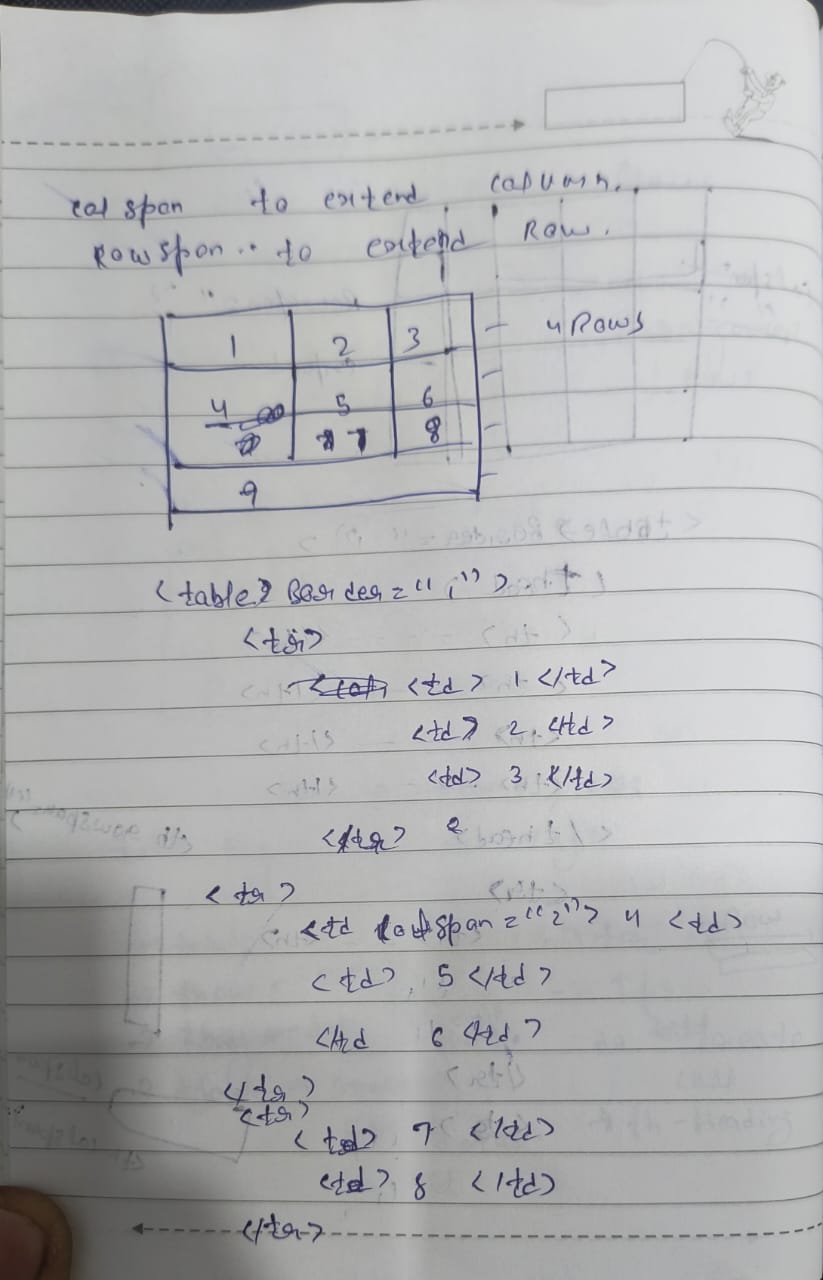 colspan to extend column.
Rowspan to extend Row.
1 2 3 4 Rows
4 5 6
7 8
9
<table> Border="1">
<tr>
<td> 1 </td>
<td> 2 </td>
<td> 3 </td>
</tr>
<tr>
<td rowspan="2"> 4 <td>
<td> 5 </td>
</td 6 </td>
</tr>
<tr>
<td> 7 </td>
<td> 8 </td>
</tr>